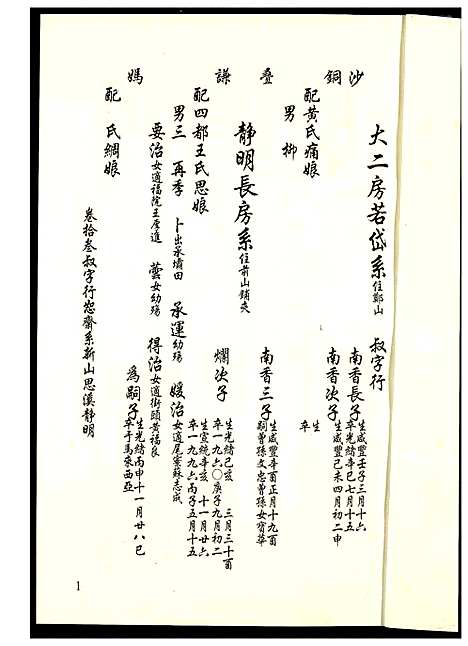 大二房若岱系住鄭山 叔字行
沙 南香長子 生咸豐壬子三月十六 卒光緒辛巳七月十五
銅 南香次子 生咸豐己未四月初二申 卒
配黃氏痛娘 生 卒
男 柳
疊 南香三子 生咸豐辛酉正月十九酉 嗣曾孫文忠曾孫女寶華
靜明長房系住前山鋪夾
謙 爛次子 生光緒己亥 三月三十酉 卒一九六〇庚子九月初二
配四都王氏思娘 生宣統辛亥 十一月廿六 卒一九九六丙子五月十五
男三 再季 卜出承墻田 承運幼殤 媛治女適尾寮蘇志成
要治女適福院王厚進 藝女幼殤 得治女適街頭黃福良
媽 為嗣子 生光緒丙申十一月廿八巳 卒于馬來西亞
配 氏綢娘
卷拾叁叔字行恕齋系新山思溪靜明
1